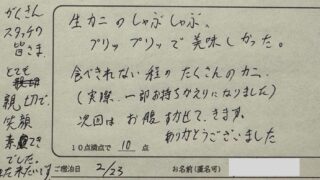 生カニのしゃぶしゃぶ、
プリップリッで美味しかった。
食べきれない程のたくさんのカニ、
(実際、一部お持ちかえりになりました)
次回はお腹すかせて、きます。
ありがとうございました
10点満点で 10 点
ご宿泊日 2/23
お名前(匿名可)
スタッフの
皆さま
とても
親切で、
笑顔
素敵
でした。
また来たいです